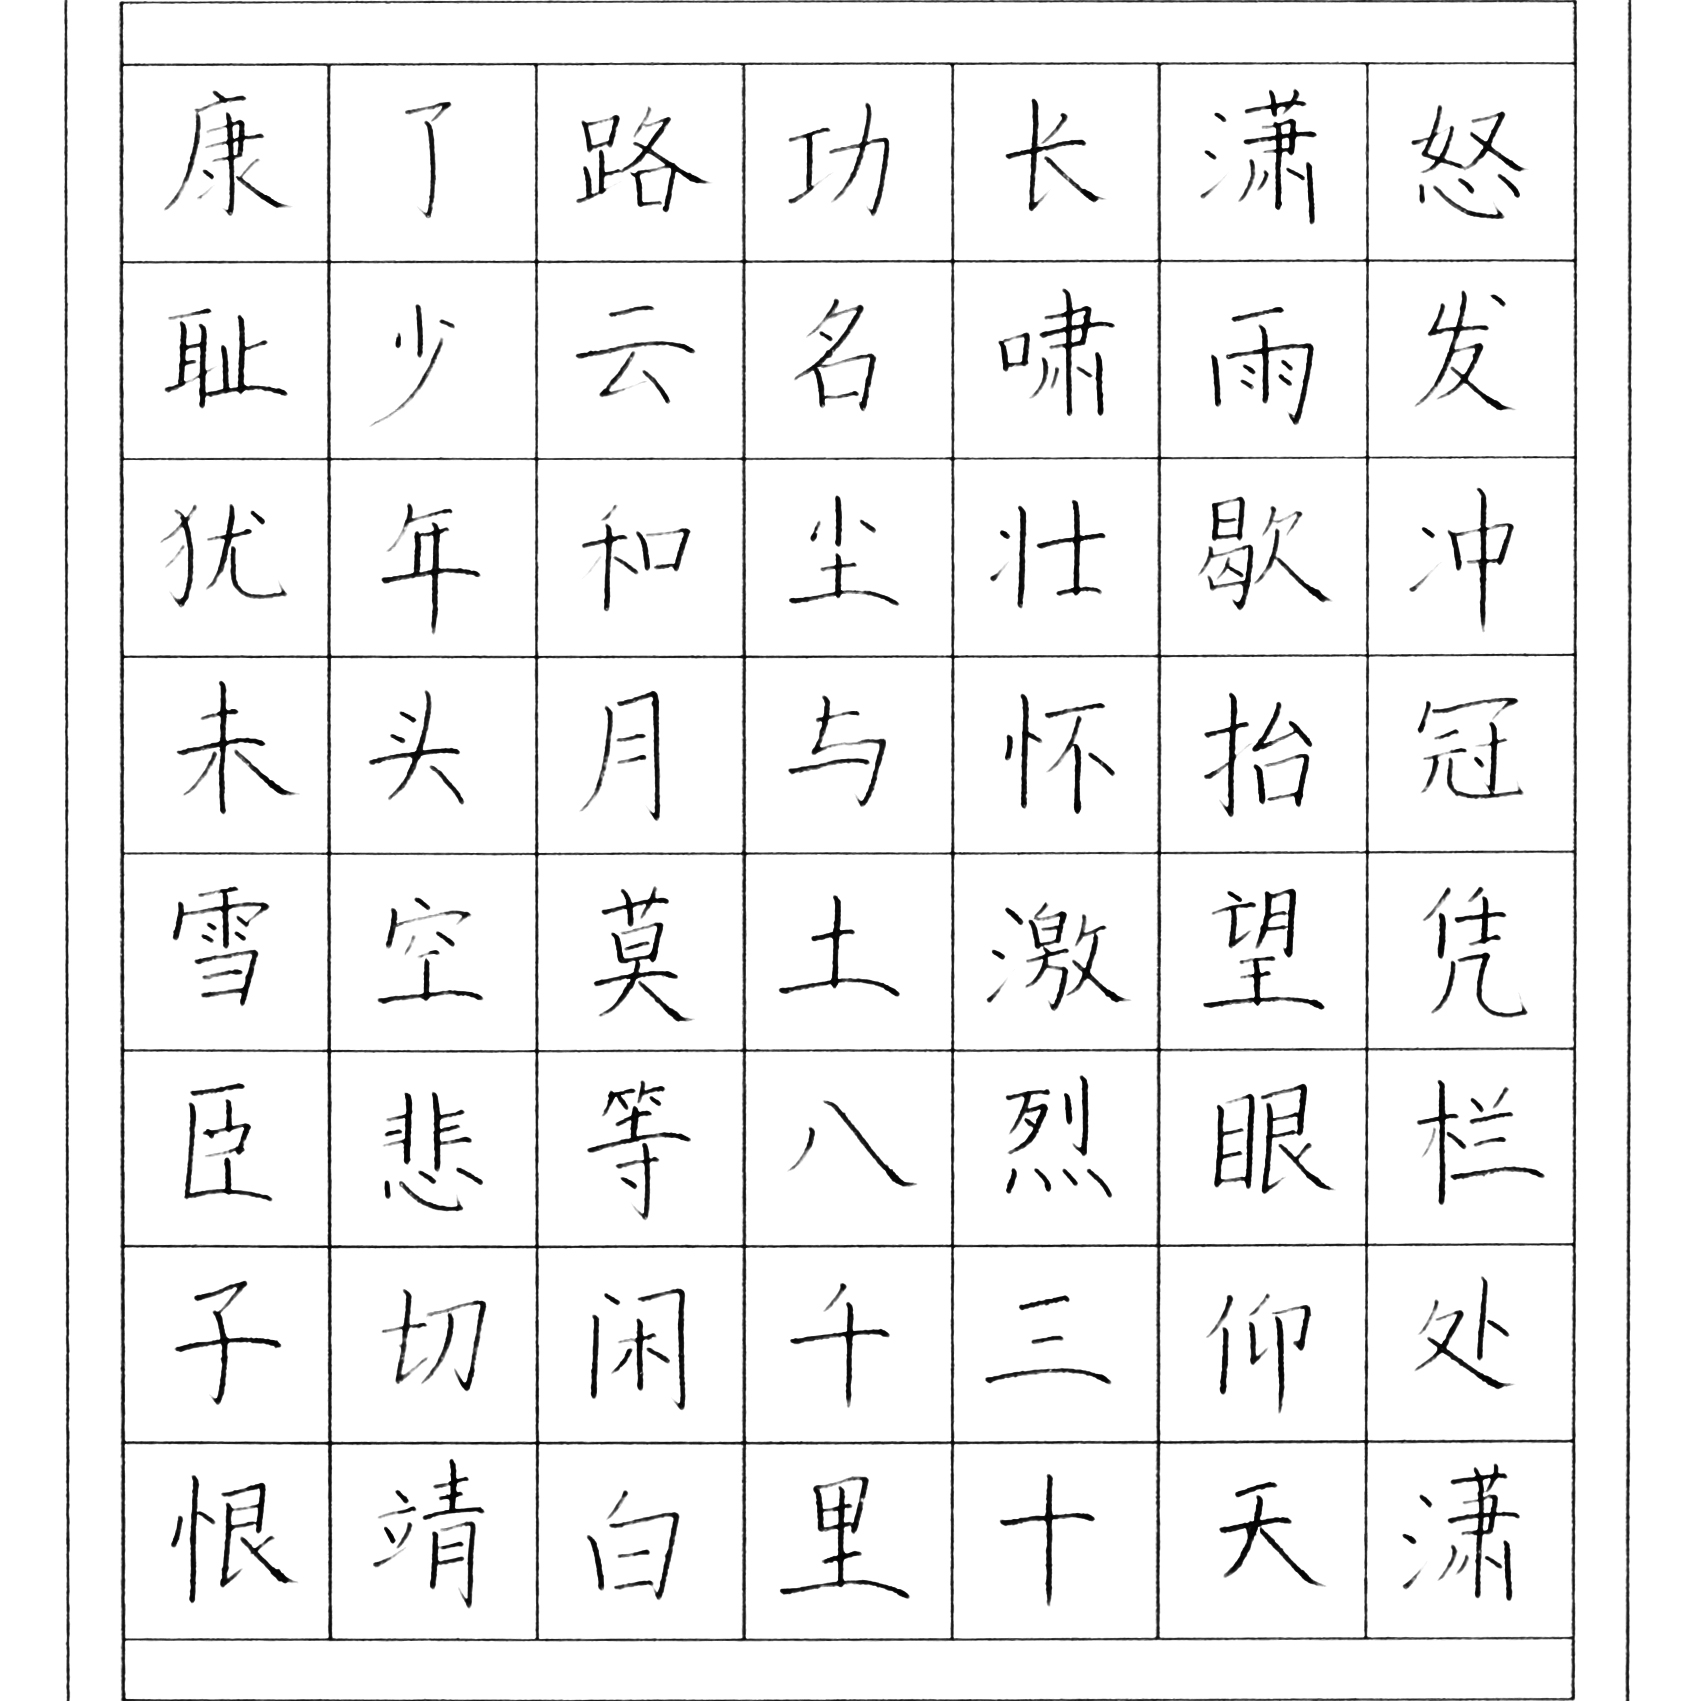 怒发冲冠凭栏处潇
潇雨歇抬望眼仰天
长啸壮怀激烈三十
功名尘与土八千里
路云和月莫等闲白
了少年头空悲切靖
康耻犹未雪臣子恨